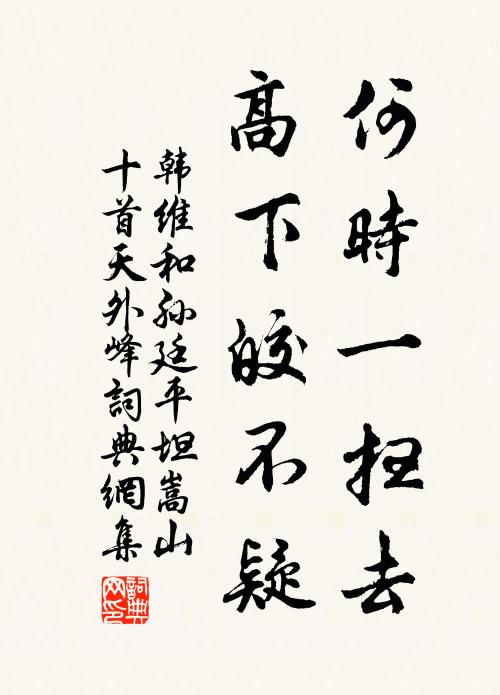 何時一抂去
高下皎不疑
韩維和孙廷平坦嵩山
十首天外峰詞典網集
詞典網印